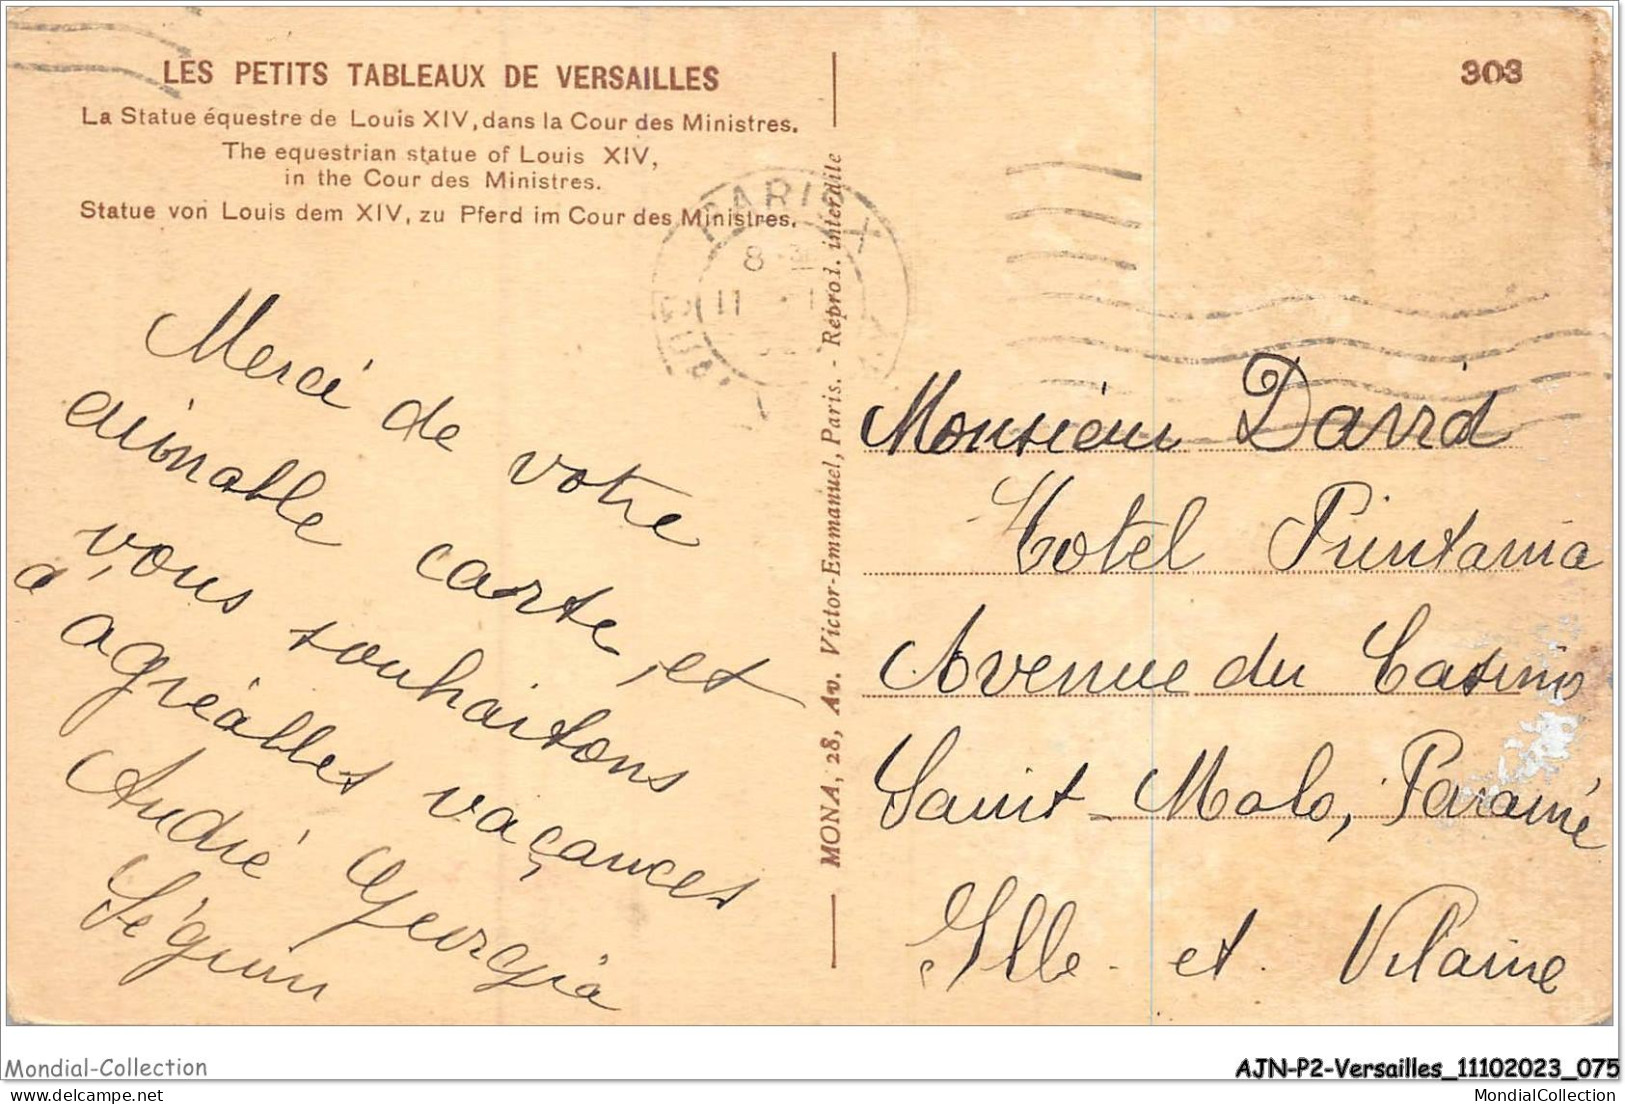 LES PETITS TABLEAUX DE VERSAILLES
La Statue équestre de Louis XIV, dans la Cour des Ministres.
The equestrian statue of Louis XIV,
in the Cour des Ministres.
Statue von Louis dem XIV, zu Pferd im Cour des Ministres.
303
PARIS X
8
11
MONA, 28, Av. Victor-Emmanuel, Paris. - Reprod. interdite
Merci de votre
aimable carte, et
vous souhaitons
d'agréables vacances
André Georgia
Séguin
Monsieur David
Hotel Printania
Avenue du Casino
Saint-Malo, Paramé
Ille-et-Vilaine
Mondial-Collection
AJN-P2-Versailles_11102023_075
MondialCollection